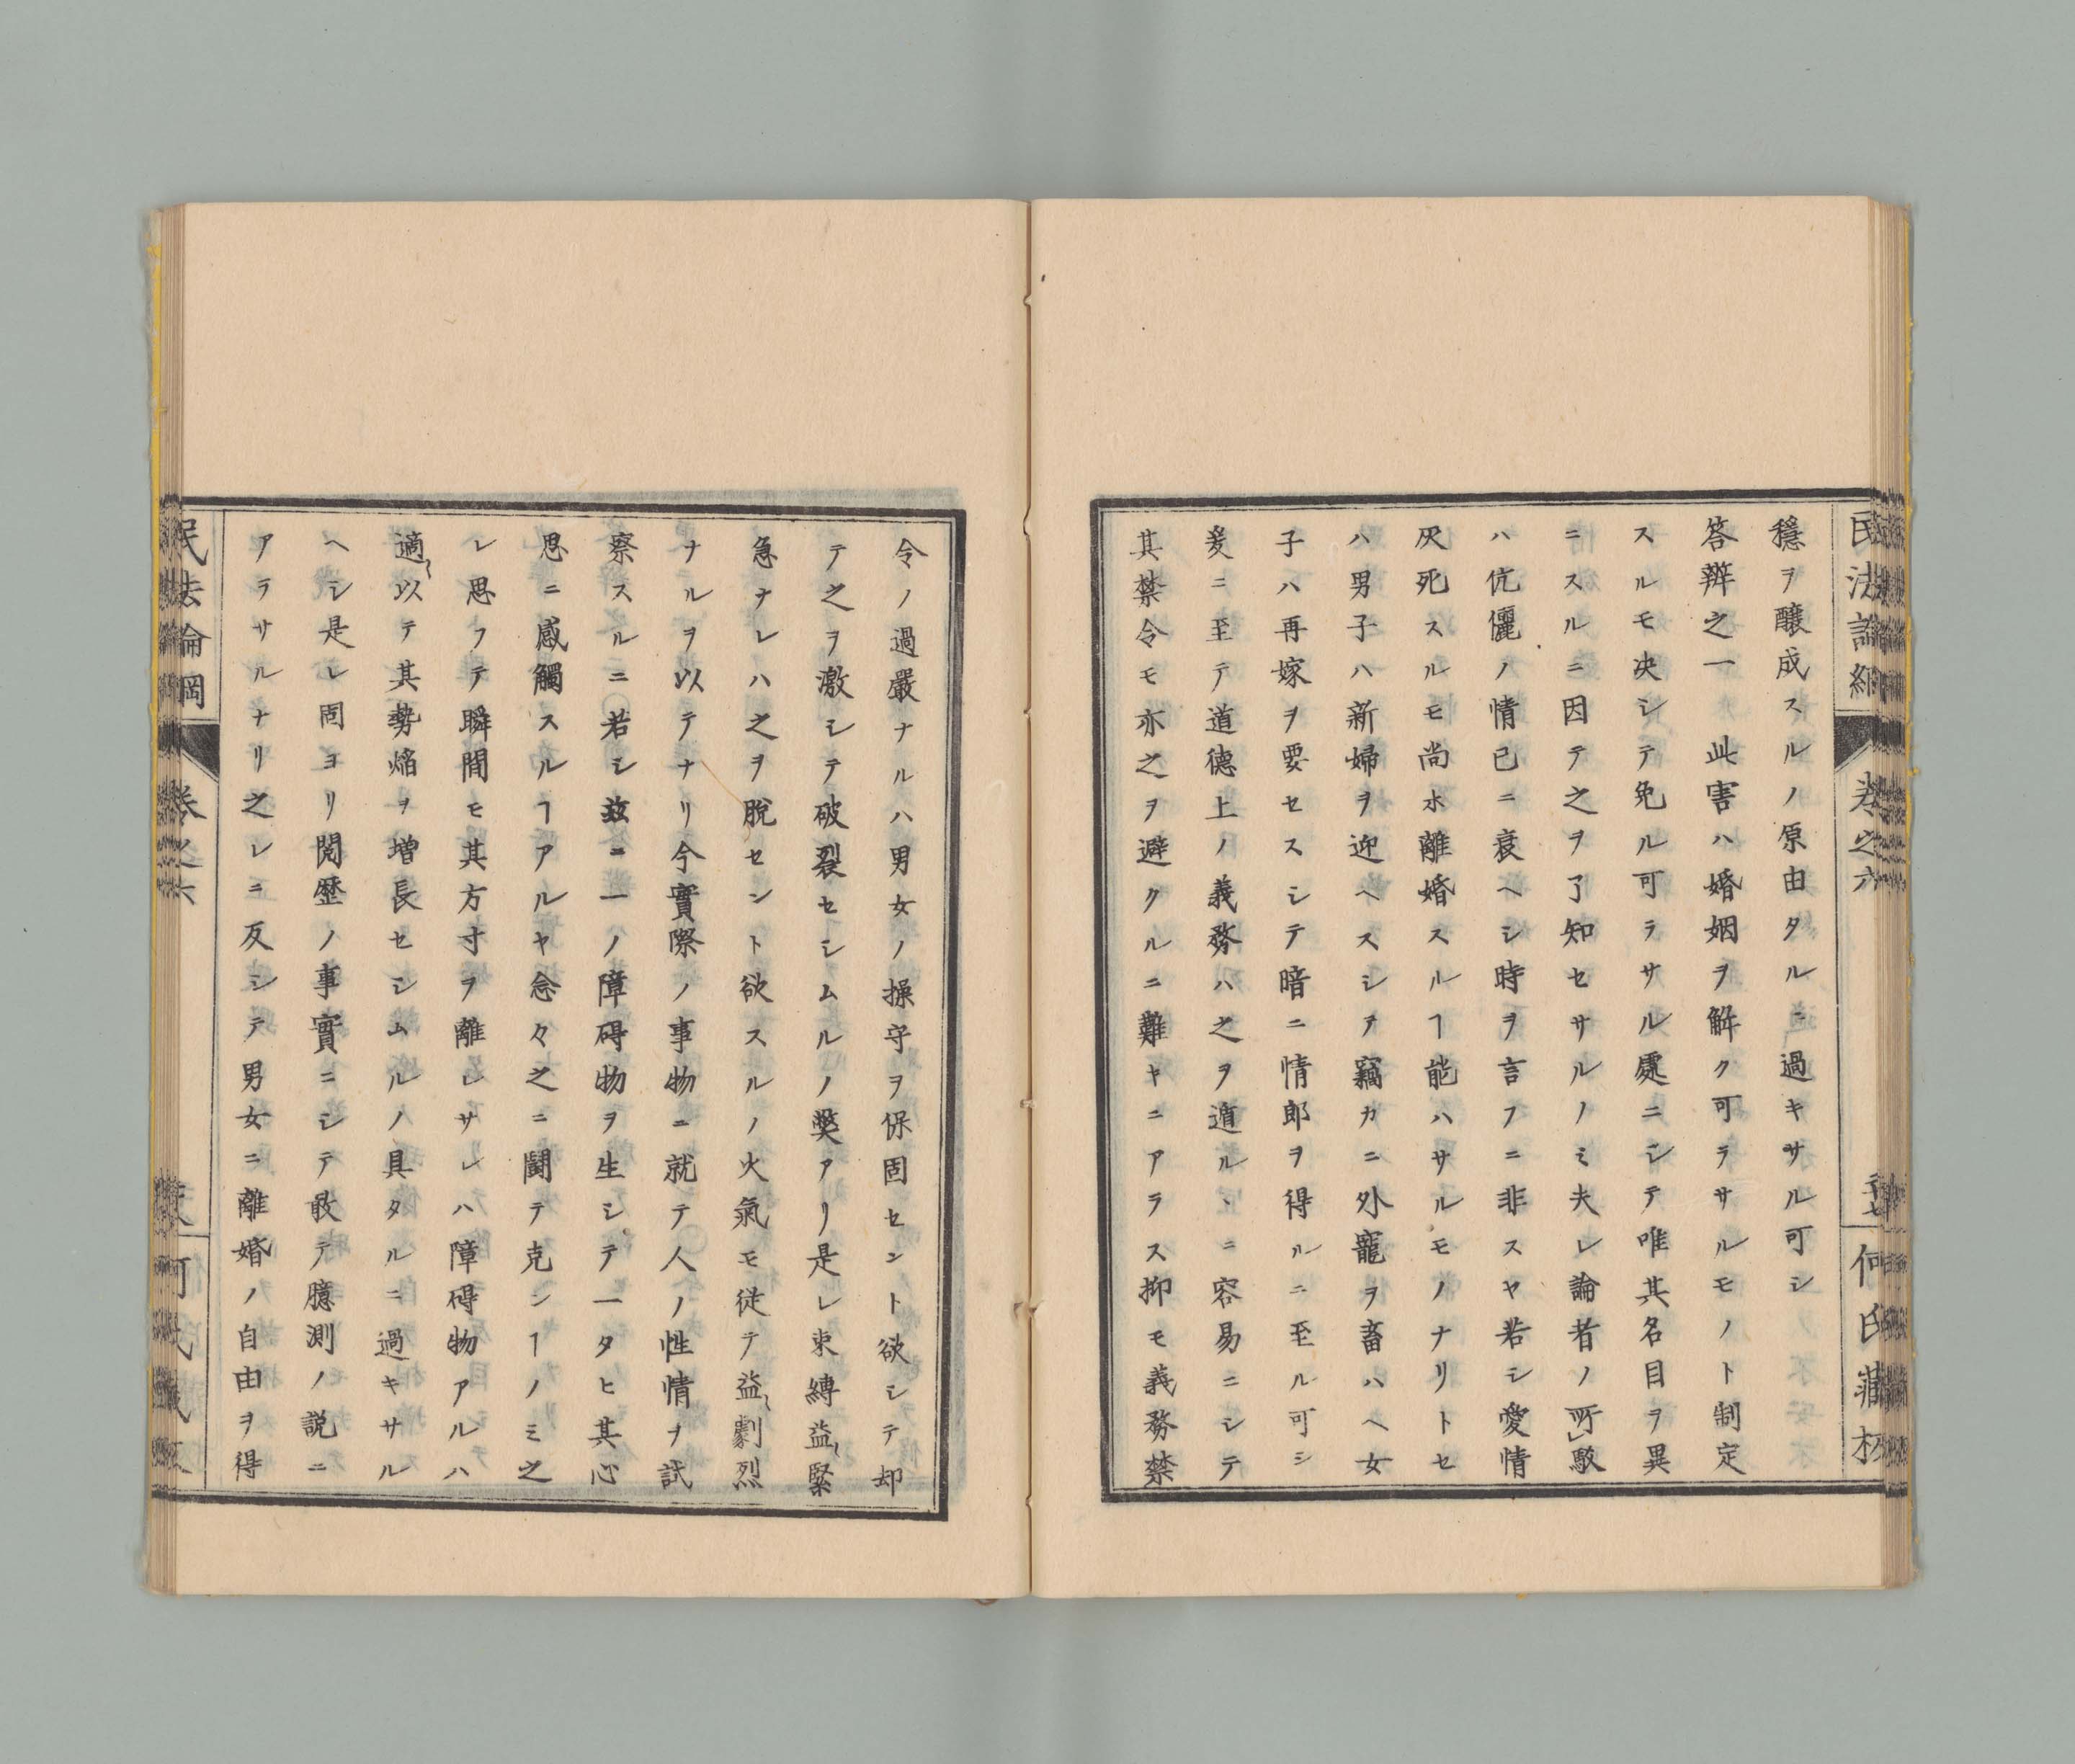 民法論綱
巻之六
何氏藏板
穩ヲ醸成スルノ原由タルニ過キサル可シ
答辨之一　此害ハ婚姻ヲ解ク可ラサルモノト制定
スルモ决シテ免ル可ラサル處ニシテ唯其名目ヲ異
ニスルニ因テ之ヲ了知セサルノミ夫レ論者ノ所駁
ハ伉儷ノ情已ニ衰ヘシ時ヲ言フニ非スヤ若シ愛情
灰死スルモ尚ホ離婚スルヿ能ハサルモノナリトセ
ハ男子ハ新婦ヲ迎ヘスシテ竊カニ外寵ヲ畜ハヘ女
子ハ再嫁ヲ要セスシテ暗ニ情郎ヲ得ルニ至ル可シ
爰ニ至テ道德上ノ義務ハ之ヲ遁ルヽニ容易ニシテ
其禁令モ亦之ヲ避クルニ難キニアラス抑モ義務禁
令ノ過嚴ナルハ男女ノ操守ヲ保固セント欲シテ却
テ之ヲ激シテ破裂セシムルノ獘アリ是レ束縛益〻緊
急ナレハ之ヲ脫セント欲スルノ火氣モ從テ益〻劇烈
ナルヲ以テナリ今實際ノ事物ニ就テ人ノ性情ヲ試
察スルニ若シ玆ニ一ノ障碍物ヲ生シテ一タヒ其心
思ニ感觸スルヿアルヤ念々之ニ鬪テ克ンヿノミ之
レ思フテ瞬間モ其方寸ヲ離レサレハ障碍物アルハ
適〻以テ其勢焔ヲ增長セシムルノ具タルニ過キサル
ヘシ是レ固ヨリ閱歷ノ事實ニシテ敢テ臆測ノ說ニ
アラサルナリ之レニ反シテ男女ニ離婚ノ自由ヲ得
民法論綱
巻之六